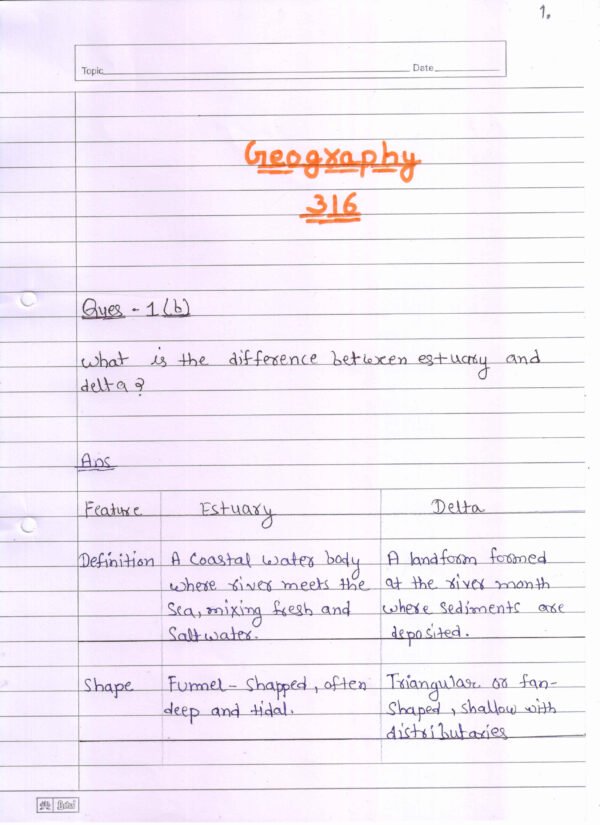 1.
Topic Date
Geography
316
Ques - 1 (b)
What is the difference between estuary and
delta?
Ans
Feature Estuary Delta
Definition A Coastal water body A landform formed
where river meets the at the river month
Sea, mixing fresh and where sediments are
Salt water. deposited.
Shape Funmel - Shapped, often Triangular or fan-
deep and tidal. Shaped, shallow with
distributaries